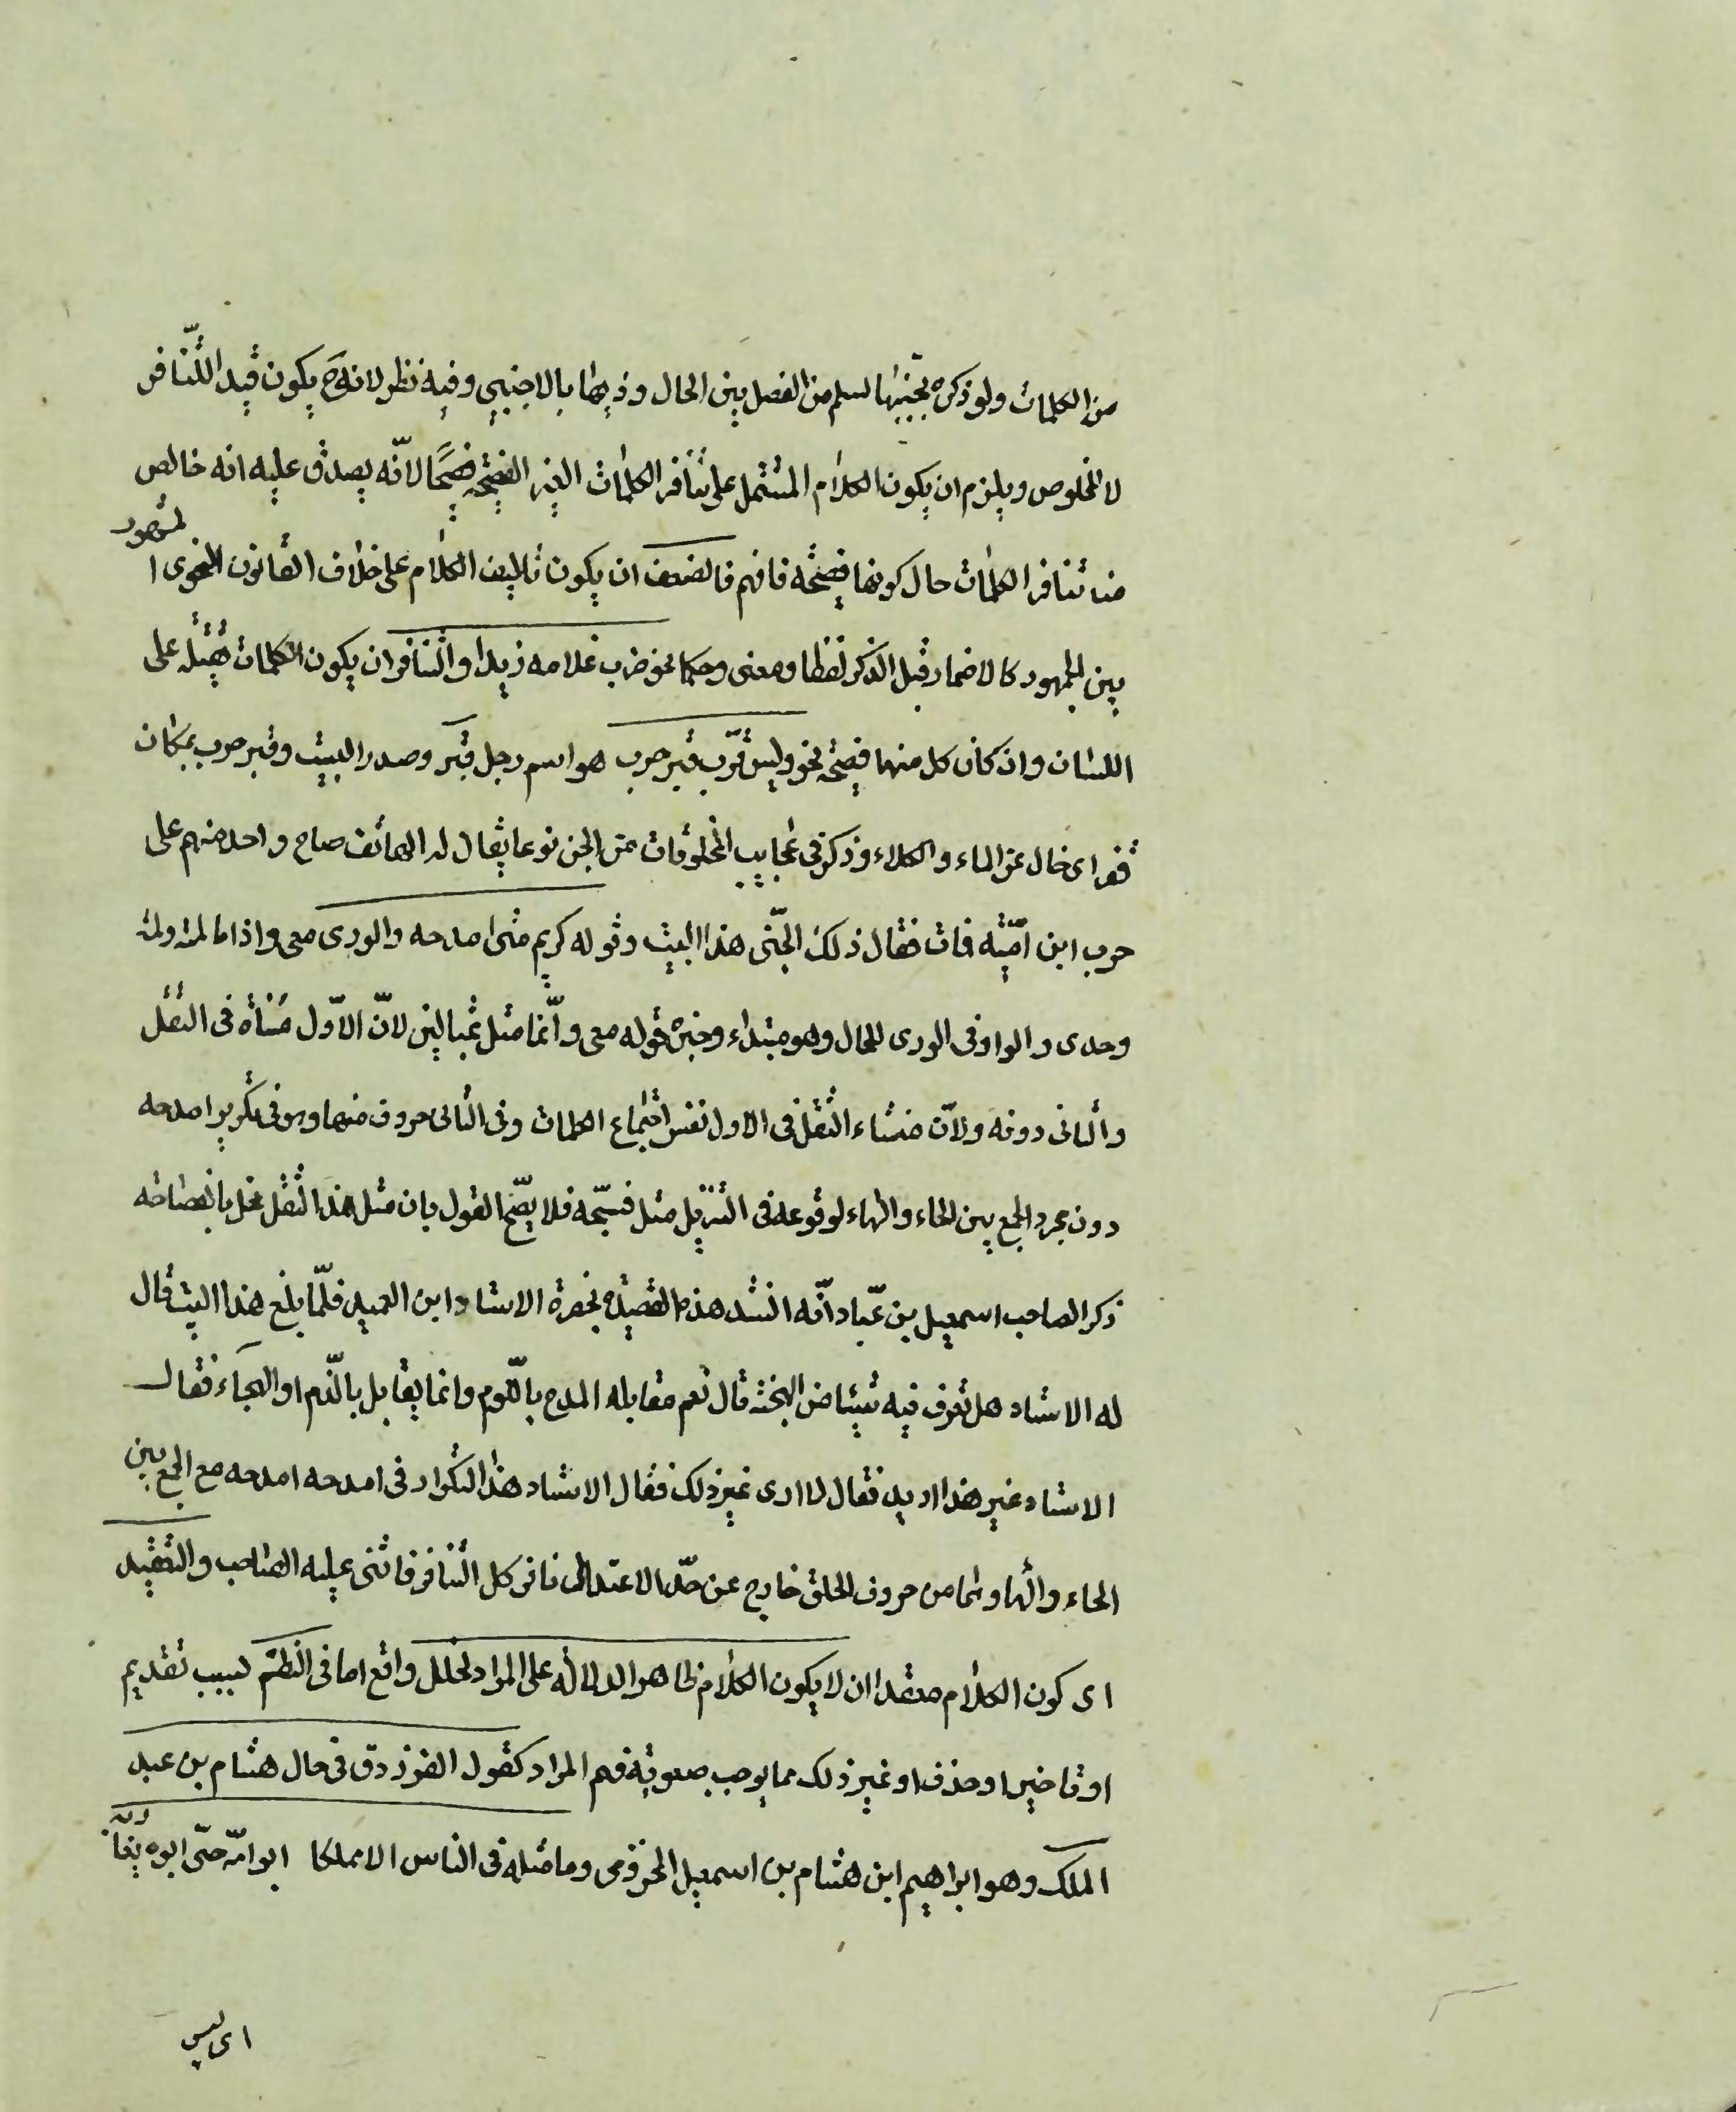 من الكلمات ولو ذكره بجنبها لسلم من الفصل بين الحال وذيها بالاجنبي وفيه نظر لانه ح يكون قيد اللتنافر
لا للخلوص ويلزم ان يكون الكلام المشتمل على تنافر الكلمات الغير الفصيحة فصيحا لانّه يصدق عليه انه خالص
من تنافر الكلمات حال كونها فصيحة فافهم فالضعف ان يكون تاليف الكلام على خلاف القانون النحوى المشهور
بين الجمهور كالاضمار قبل الذكر لفظا ومعنى وحكما نحو ضرب غلامه زيدا والتنافر ان يكون الكلمات ثقيلة على
اللسان وان كان كل منها فصيحة نحو وليس قرب قبر حرب هو اسم رجل قبر وصدر البيت وقبر حرب بمكان
قفر اى خال عن الماء والكلاء وذكر فى عجايب المخلوقات من الجن نوعا يقال له الهاتف صاح واحد منهم على
حرب ابن اميّة فمات فقال ذلك الجنّى هذا البيت وقوله كريم متى امدحه والورى معى واذا ما لمته لمته
وحدى والواو فى الورى للحال وهو مبتداء وخبره قوله معى وانّما مثل بمثالين لانّ الاوّل متناه فى الثقل
والثانى دونه ولانّ منشاء الثقل فى الاول نفس اجتماع الكلمات وفى الثانى حروف منها وهو فى تكرير امدحه
دون مجرد الجمع بين الحاء والهاء لوقوعه فى التنزيل مثل فسبّحه فلا يصّح القول بان مثل هذا الثقل مخل بالفصاحه
ذكر الصاحب اسمعيل بن عبّاد انّه انشد هذه القصيدة بحضرة الاستاد ابن العميد فلمّا بلغ هذا البيت قال
له الاستاد هل تعرف فيه شيئا من الهجنة قال نعم مقابلة المدح باللّوم وانما يقابل بالذّم او الهجاء فقال
الاستاد غير هذا اريد فقال لا ارى غير ذلك فقال الاستاد هذا التكرار فى امدحه امدحه مع الجمع بين
الحاء والهاء وهما من حروف الحلق خارج عن حدّ الاعتدال نافر كل التنافر فاثنى عليه الصاحب والتعقيد
اى كون الكلام معقدا ان لا يكون الكلام ظاهر الدلالة على المراد لخلل واقع اما فى النظم لسبب تقديم
او تاخير او حذف او غير ذلك مما يوجب صعوبة فهم المراد كقول الفرزدق فى خال هشام بن عبد
الملك وهو ابراهيم ابن هشام بن اسمعيل المخزومى وما مثله فى الناس الا مملكا ابو امّه حىّ ابوه يقاربه
اى ليس